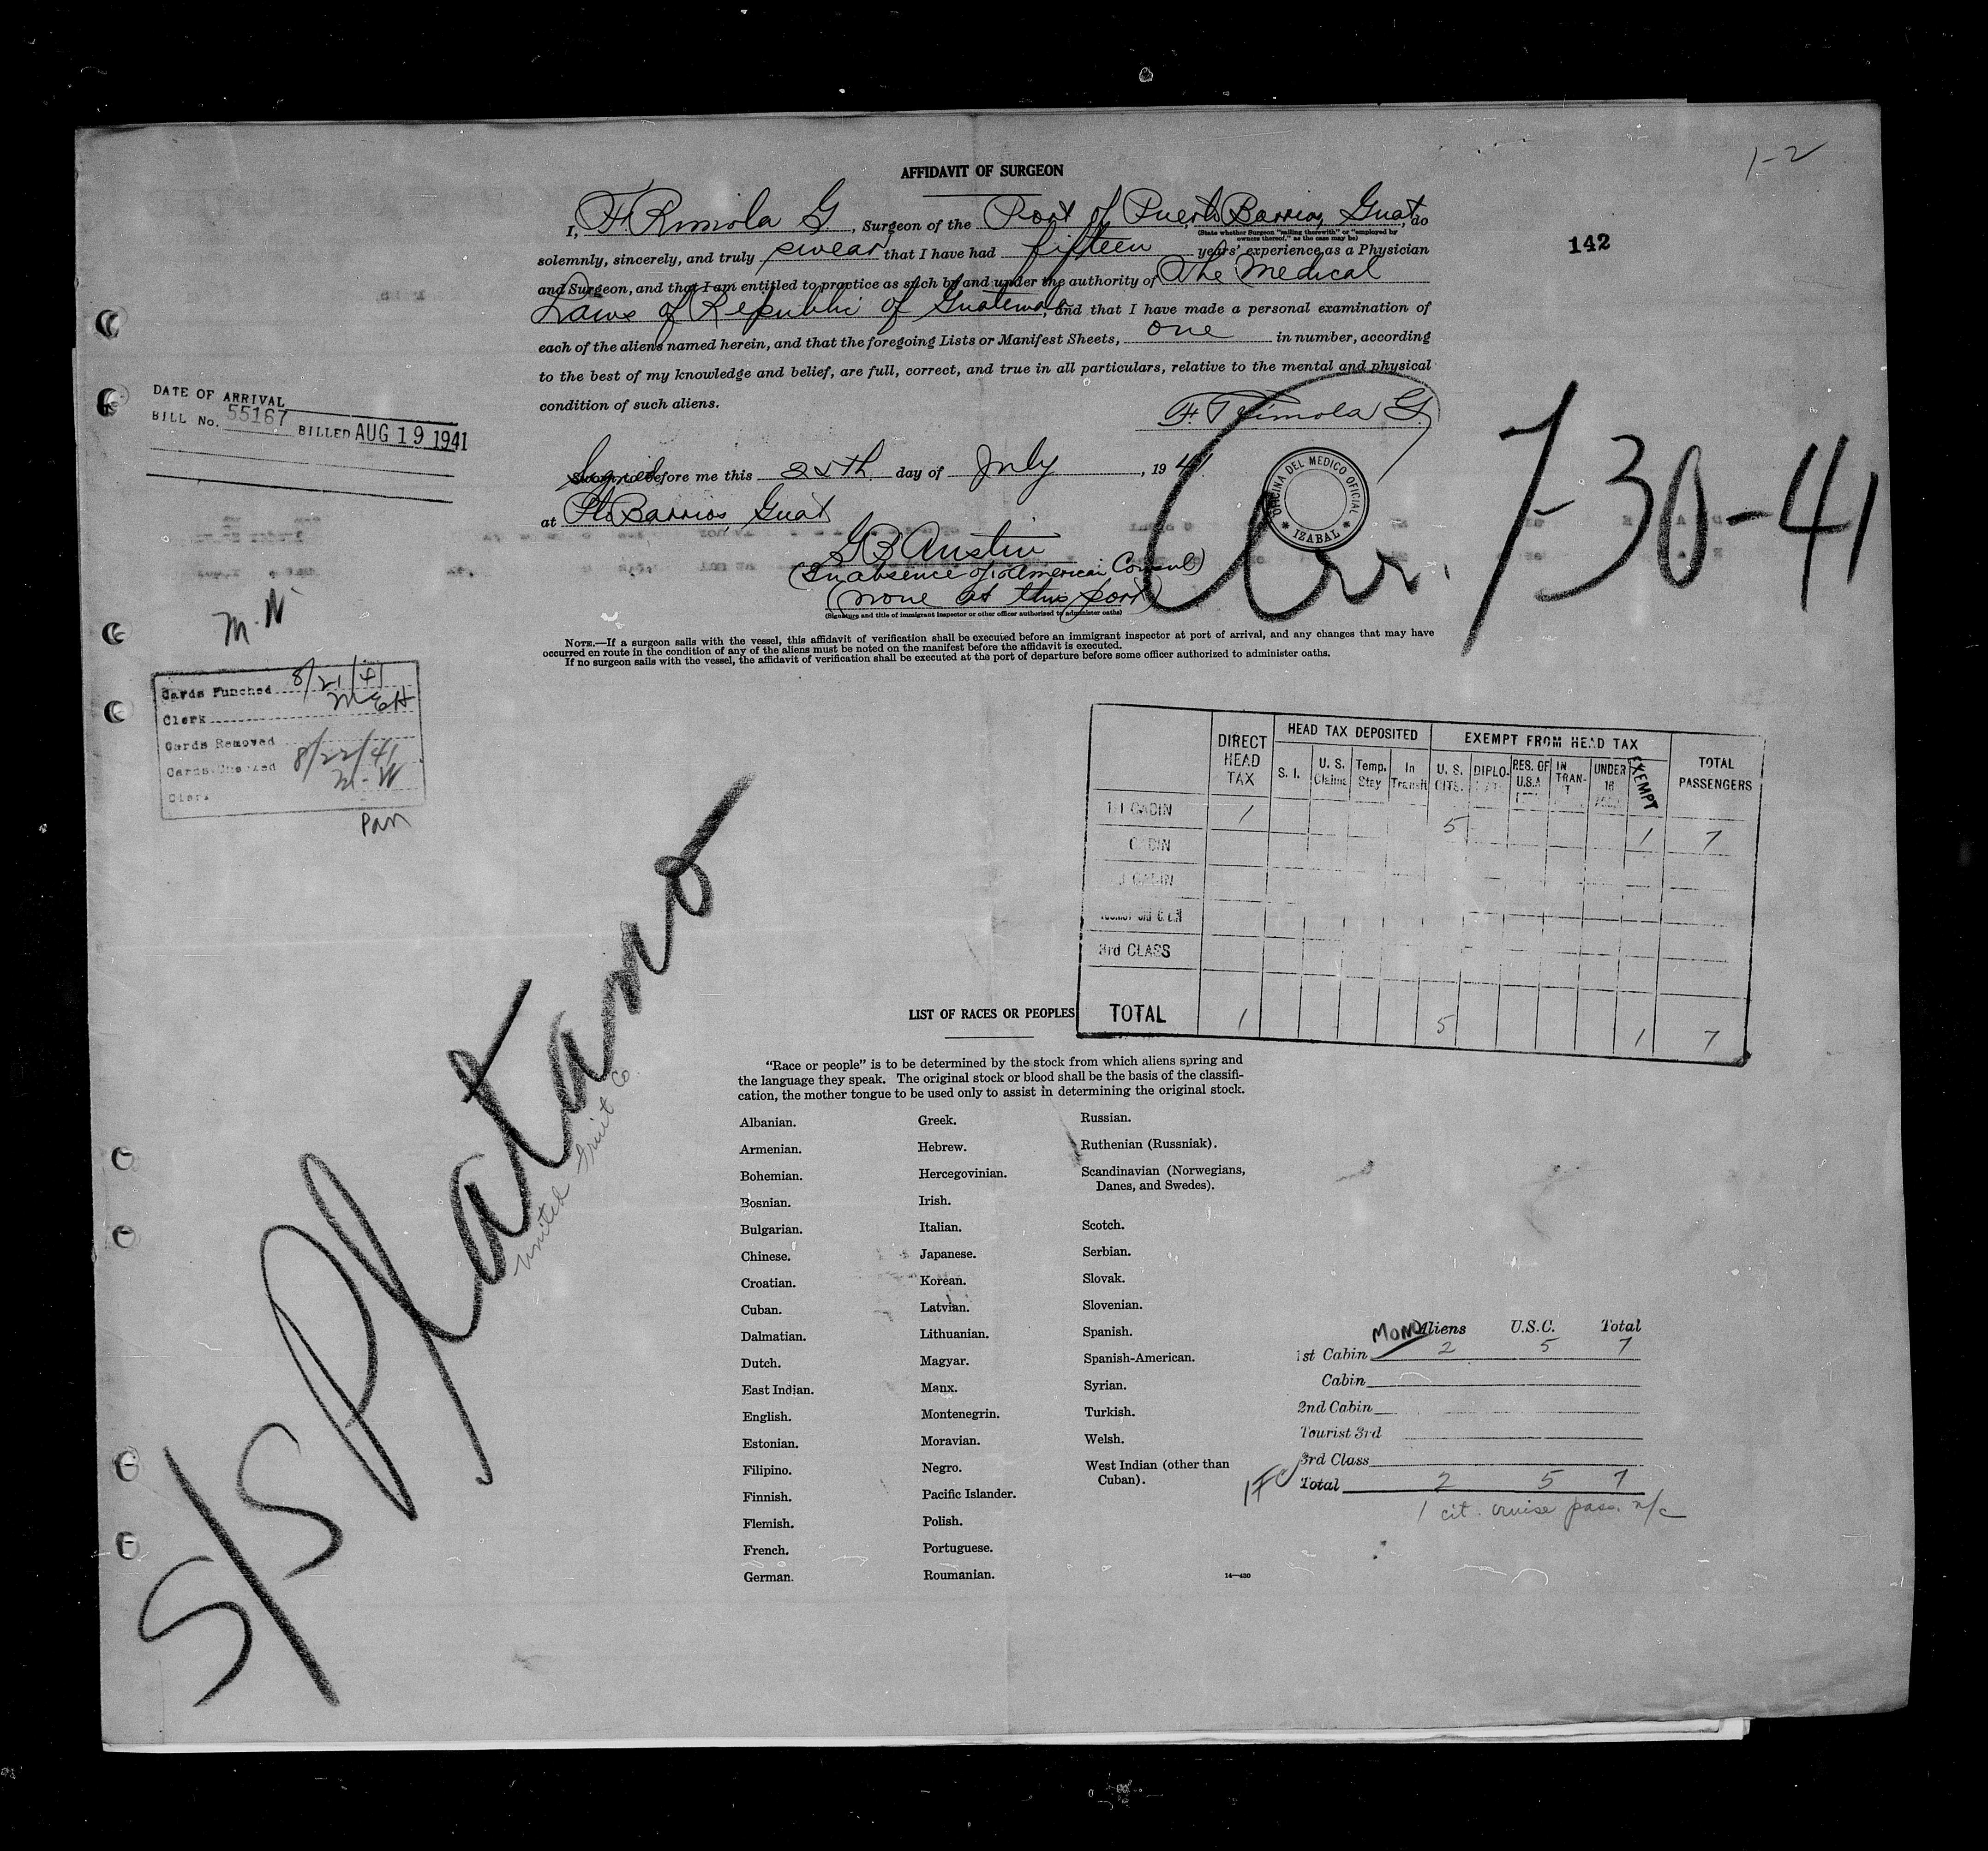 1-2
AFFIDAVIT OF SURGEON
I, F. Rimola G., Surgeon of the Port of Puerto Barrios, Guat, do
(State whether Surgeon "sailing therewith" or "employed by
owners thereof," as the case may be)
142
solemnly, sincerely, and truly swear that I have had fifteen years' experience as a Physician
and Surgeon, and that I am entitled to practice as such by and under the authority of The Medical
Laws of Republic of Guatemala, and that I have made a personal examination of
each of the aliens named herein, and that the foregoing Lists or Manifest Sheets, one in number, according
to the best of my knowledge and belief, are full, correct, and true in all particulars, relative to the mental and physical
condition of such aliens.
F. Rimola G.
DATE OF ARRIVAL
BILL No. 55167 BILLED AUG 19 1941
Signed before me this 25th day of July, 1941
at Pto Barrios, Guat
OFICINA DEL MEDICO OFICIAL
* IZABAL *
Arr. 7-30-41
G B Austin
(In absence of American Consul)
(none at this port)
(Signature and title of immigrant inspector or other officer authorized to administer oaths)
NOTE.—If a surgeon sails with the vessel, this affidavit of verification shall be executed before an immigrant inspector at port of arrival, and any changes that may have
occurred en route in the condition of any of the aliens must be noted on the manifest before the affidavit is executed.
If no surgeon sails with the vessel, the affidavit of verification shall be executed at the port of departure before some officer authorized to administer oaths.
M.W.
Cards Punched 8/21/41
Clerk McH
Cards Removed
Cards Checked 8/22/41
Clerk M-W
Pan
DIRECT HEAD TAX
HEAD TAX DEPOSITED
EXEMPT FROM HEAD TAX
TOTAL PASSENGERS
S. I.
U. S. Claims
Temp. Stay
In Transit
U. S. CITS.
DIPLO-
RES. OF U.S.A
IN TRAN-
UNDER 16
EXEMPT
1st CABIN 1 5 1 7
CABIN
CABIN
3rd CLASS
TOTAL 1 5 1 7
S/S Platano
United Fruit Co.
LIST OF RACES OR PEOPLES
"Race or people" is to be determined by the stock from which aliens spring and
the language they speak. The original stock or blood shall be the basis of the classifi-
cation, the mother tongue to be used only to assist in determining the original stock.
Albanian.
Armenian.
Bohemian.
Bosnian.
Bulgarian.
Chinese.
Croatian.
Cuban.
Dalmatian.
Dutch.
East Indian.
English.
Estonian.
Filipino.
Finnish.
Flemish.
French.
German.
Greek.
Hebrew.
Hercegovinian.
Irish.
Italian.
Japanese.
Korean.
Latvian.
Lithuanian.
Magyar.
Manx.
Montenegrin.
Moravian.
Negro.
Pacific Islander.
Polish.
Portuguese.
Roumanian.
Russian.
Ruthenian (Russniak).
Scandinavian (Norwegians,
Danes, and Swedes).
Scotch.
Serbian.
Slovak.
Slovenian.
Spanish.
Spanish-American.
Syrian.
Turkish.
Welsh.
West Indian (other than
Cuban).
14—430
Aliens U.S.C. Total
1st Cabin 2 5 7
Cabin
2nd Cabin
Tourist 3rd
3rd Class
Total 2 5 7
1 cit. cruise pass. n/c